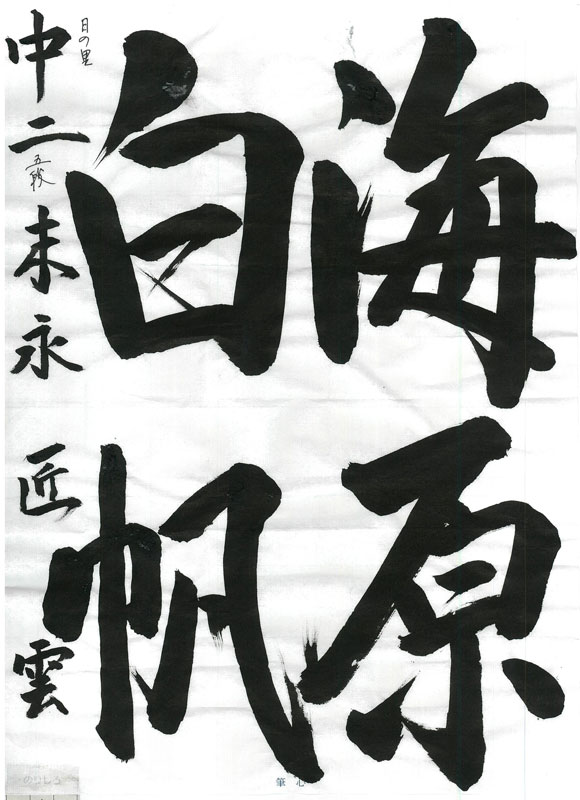 海原
白帆
日の里
中二 五段 末永 匠雲
筆心